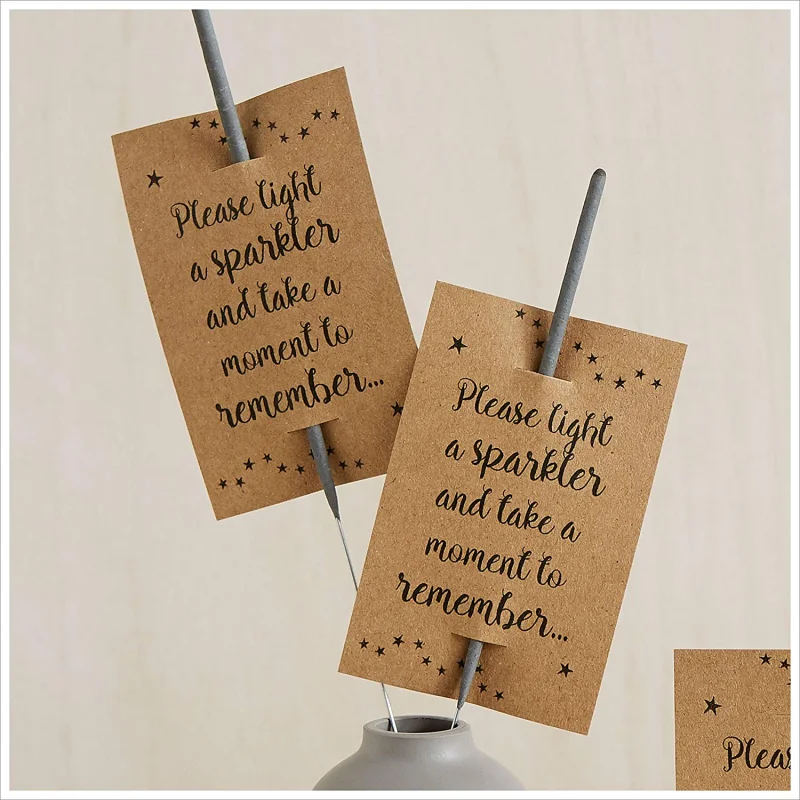 Please light
a sparkler
and take a
moment to
remember...
Please light
a sparkler
and take a
moment to
remember...
Pleas